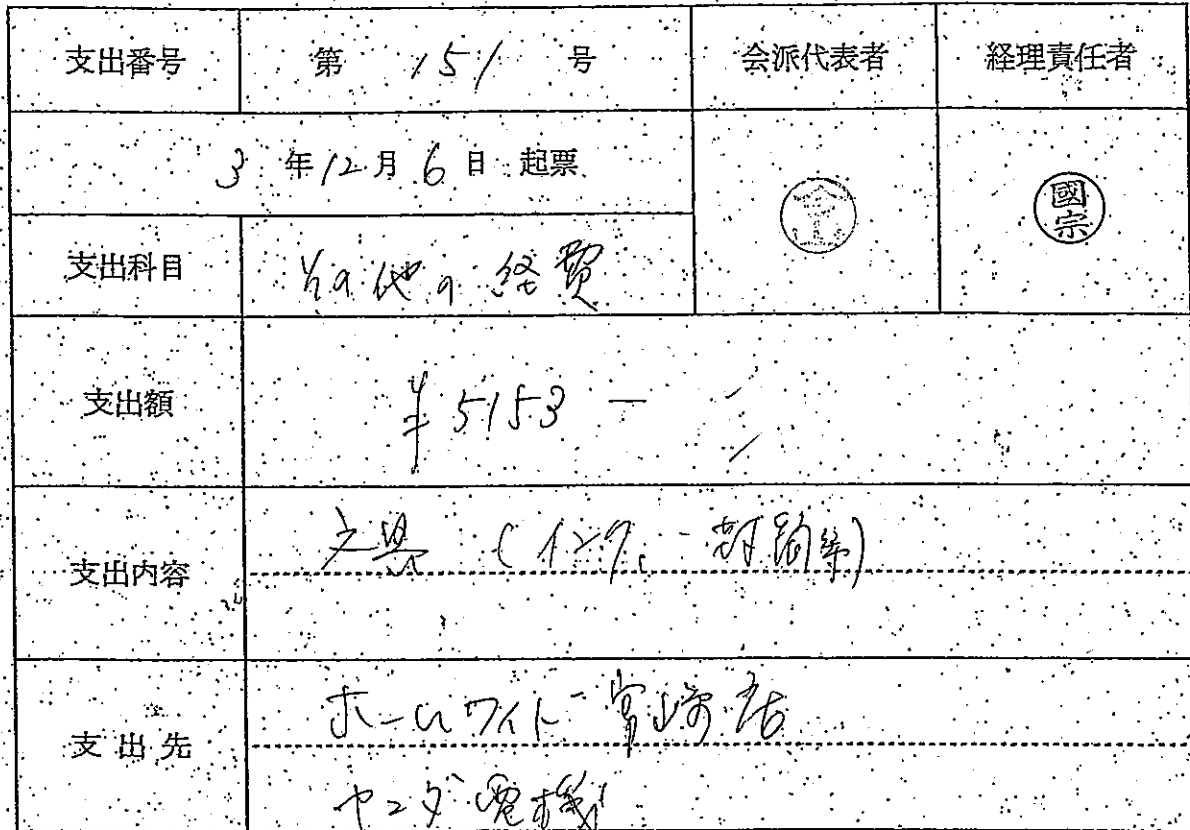 支出番号 第 151 号 会派代表者 経理責任者
3 年 12 月 6 日 起票
國宗
支出科目 その他の経費
支出額 ¥5153 －
支出内容 文具 (インク、封筒等)
支出先 ホームワイド 店
ヤマダ電機